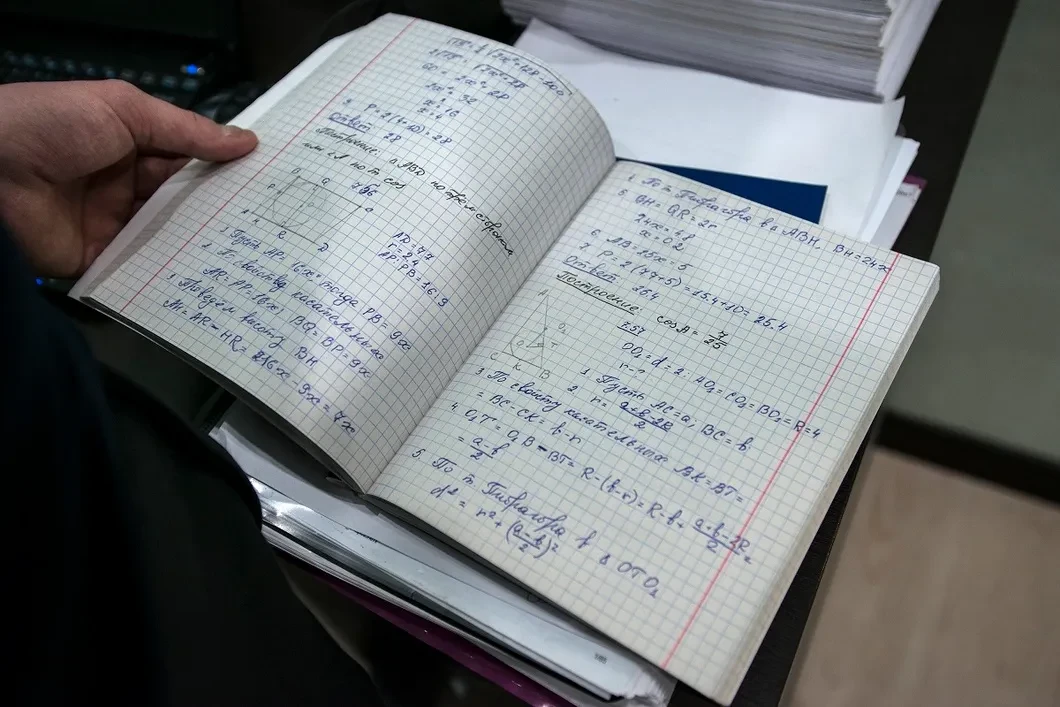 2x² = 32
x² = 16
x = 4
3 P = 2(4+10) = 28
Ответ 28
Построение: △ABD по трем сторонам
7.56
AD = 77
r = 2.4
AP:PB = 16:9
1 Пусть AP = 16x, тогда PB = 9x
2 По свойству касательных
AR = PP = 16x; BQ = BP = 9x
Проведём высоту BH
AH = AR - HR = 16x - 9x = 7x
По т. Пифагора в △ABH. BH = 24x
5 BH = QR = 2r
24x = 4.8
x = 0.2
6 AB = 25x = 5
7 P = 2(7.7+5) = 15.4+10 = 25.4
Ответ 25.4
Построение cos A = 7/25
7.57
OO₁ = d = 2; AO₁ = CO₁ = BO₁ = R = 4
1 Пусть AC = a; BC = b
2 r = (a+b-2R)/2
3 По свойству касательных BK = BT =
= BC - CK = b - r
4 O₁T = O₁B - BT = R - (b-r) = R - b + (a+b-2R)/2 =
= (a-b)/2
5 По т. Пифагора в △OTO₁
d² = r² + ((a-b)/2)²